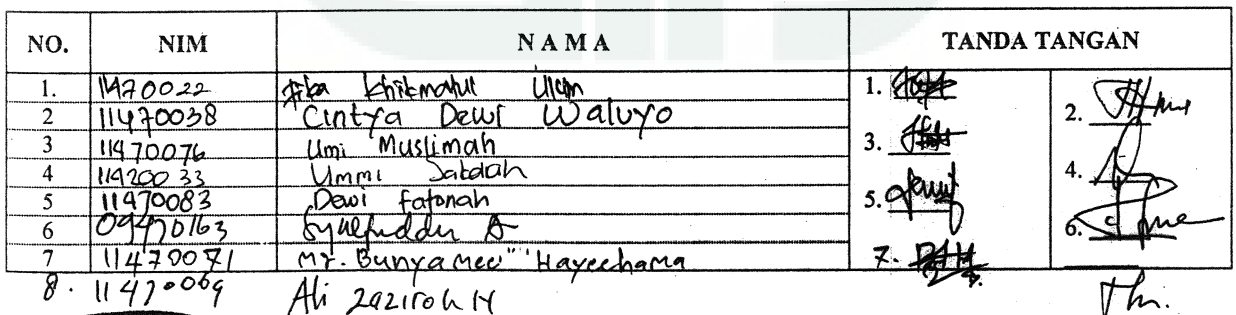 NO. NIM NAMA TANDA TANGAN
1. 11470022 Khikmatul Ulum 1.
2 11470038 Cintya Dewi Waluyo 2.
3 11470076 Umi Muslimah 3.
4 11420033 Ummi Sabdah 4.
5 11470083 Dewi Fatonah 5.
6 09470163 6.
7 11470071 Mr. Bunyamee Hayeechama 7.
8. 11470069 Ali